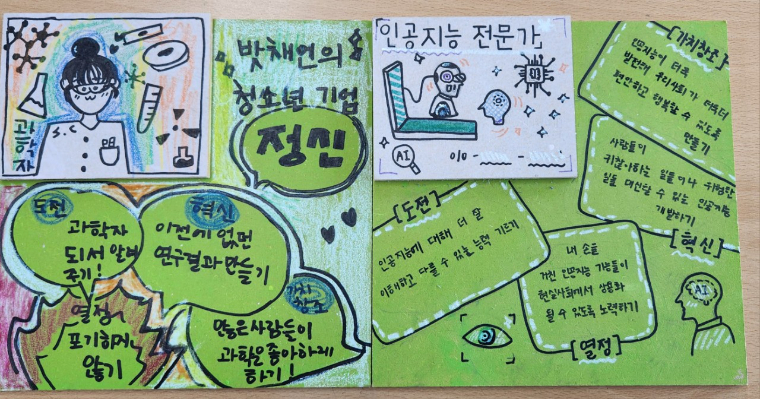 과학자
S.C
밧채언의
청소년 기업
정신
도전
과학자
되서 알려
주기!
혁신
이전에 없던
연구결과 만들기
열정
포기하지
않기
가치
창조
많은사람들이
과학을 좋아하게
하기!
인공지능 전문가
AI
010-
[가치창조]
인공지능이 더욱
발전해 우리사회가 더욱더
편안하고 행복할 수 있도록
만들기
사람들이
귀찮아하는 일들이나 위험한
일을 대신할 수 있는 인공지능
개발하기
[혁신]
[도전]
인공지능에 대해 더 잘
이해하고 다룰 수 있는 능력 기르기
내 손을
거친 인공지능 기능들이
현실사회에서 상용화
될 수 있도록 노력하기
[열정]
AI